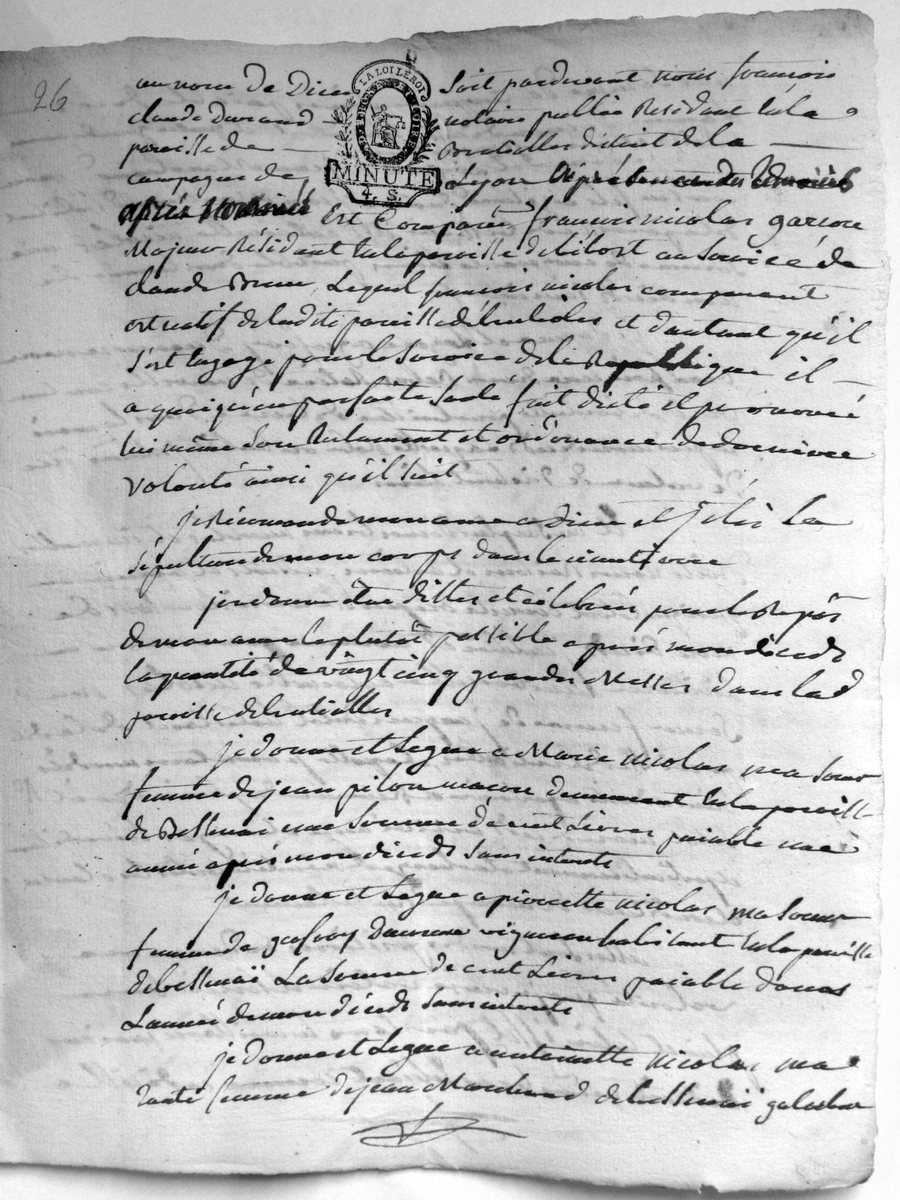 26
LA LOI LE ROI
MINUTE
4. S.
au nom de Dieu Soit pardevant nous françois
claude Durand notaire public Résidant en la
paroisse de district de la
campagne de Lyon En présence des témoins
après Nommés Est Comparu françois nicolas garcon
Majeur Résidant en la paroisse de au Service de
claude Brun, Lequel françois nicolas comparant
est natif de ladite paroisse de et dautant qu'il
s'est engagé pour le Service de la Republique il
a quoiqu'en parfaite Santé fait dicté et prononcé
lui même Son testament et ordonnance de derniere
volonté ainsi qu'il Suit
je recomande mon ame a dieu et j'elis la
sépulture de mon corps dans le cimetiere
je donne être dittes et célébrés pour le Repos
de mon ame le plutôt possible après mon décéds
la quantité de vingt cinq grandes Messes dans lad
paroisse de
je donne et Legue a Marie nicolas ma Soeur
femme de jean pilon maçon demeurant en la paroisse
de une Somme de cent Livres paiable une
année après mon décéds Sans interets
je donne et Legue a pierrette nicolas ma Soeur
femme de vigneron habitant en la paroisse
de La Somme de cent Livres paiable dans
L'année de mon décéds Sans interets
je donne et Legue a antoinette nicolas ma
tante femme de jean de